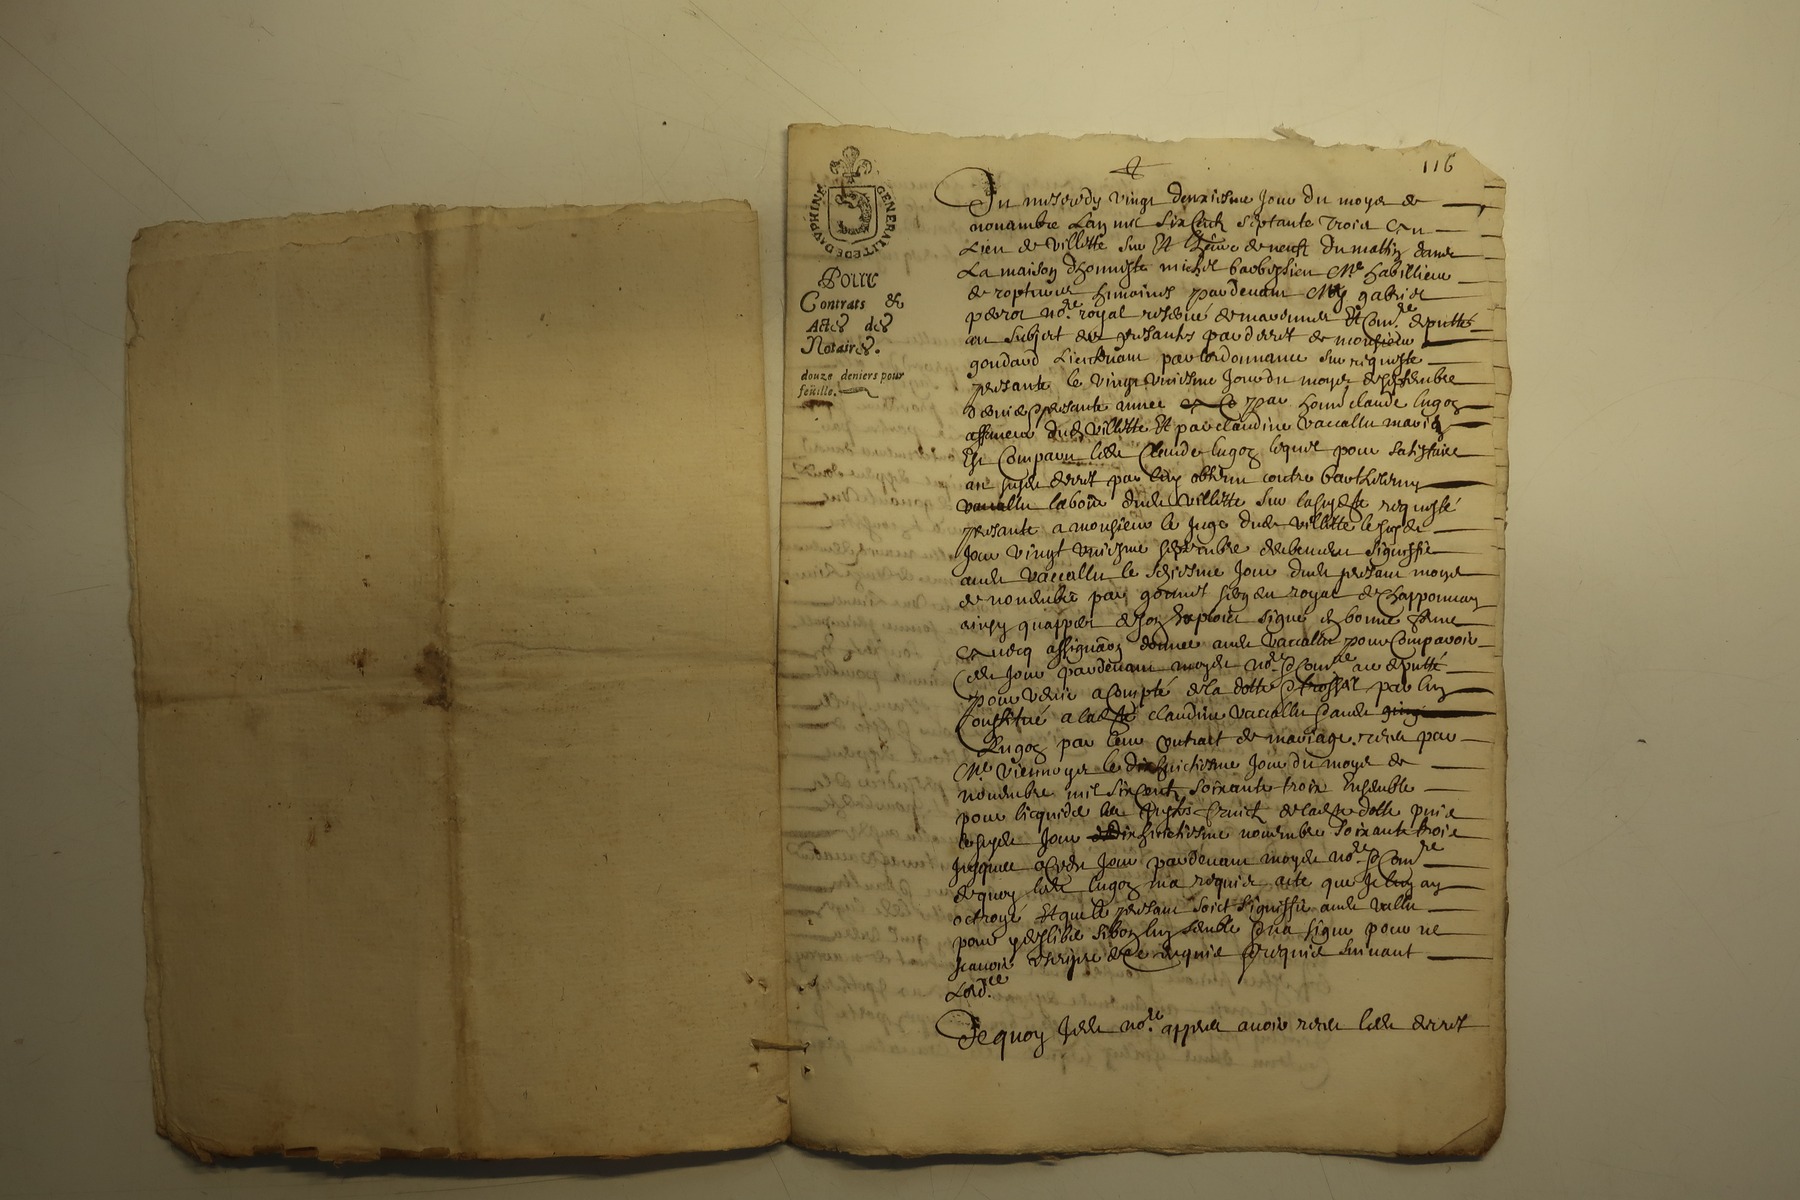 116
GENERALITE DE DAUPHINE
Pour
Contrats &
Actes des
Notaires.
douze deniers pour
feüille.
Du mercredy vingt deuxiesme Jour du moys de
nouambre Lan mil six Cent septante trois en
Lieu de villette sur Et lheure de neuf du mattin dans
La maison dhonneste michel Me habillieur
de humaines pardeuant Moy gabriel
no.re royal reserué de Et Com.re deputté
au subject des presantes par decret de monsieur
goudard Lieutenant par lordonnance sur requeste
presante le vingt uniesme Jour du moys de septembre
presante année par honn claude lugoz
dud villette Et par claudine vacallu mariés
Est Comparu led Claude lugoz lequel pour satisfaire
au susd decret par luy obtenu contre barthelemy
vacallu labour dud villette sur la susdte requeste
presante a monsieur le Juge dud villette le susd
Jour vingt uniesme septembre deubement signiffié
aud vacallu le seiziesme Jour dud presant moys
de nouembre par royal de Chapponnay
ainsy quappert de son Exploict signé en bonne forme
auecq assignaon donnee aud vacallu pour Comparoir
led Jour pardeuant moyd no.re & Com.re deputté
pour venir a Compte de la dotte & trossel par luy
Constitué a ladte claudine vacallu & aud
Lugoz par leur Contract de mariage receu par
Me le dixhuictiesme Jour du moys de
nouembre mil six cent soixante trois Ensemble
pour licquider les fruict de ladte dotte puis
lesusd Jour dixhuictiesme nouembre soixante trois
Jusques a Ced Jour pardeuant moyd no.re & Com.re
de quoy led lugoz ma requis acte que Je luy ay
octroyé Et que le presant soict signiffié aud vallu
pour y sibon luy semble & na signé pour ne
scauoir escripre de Ce enquis & requis suiuant
Lord.ce
De quoy Jedt no.re appres auoir receu led decret